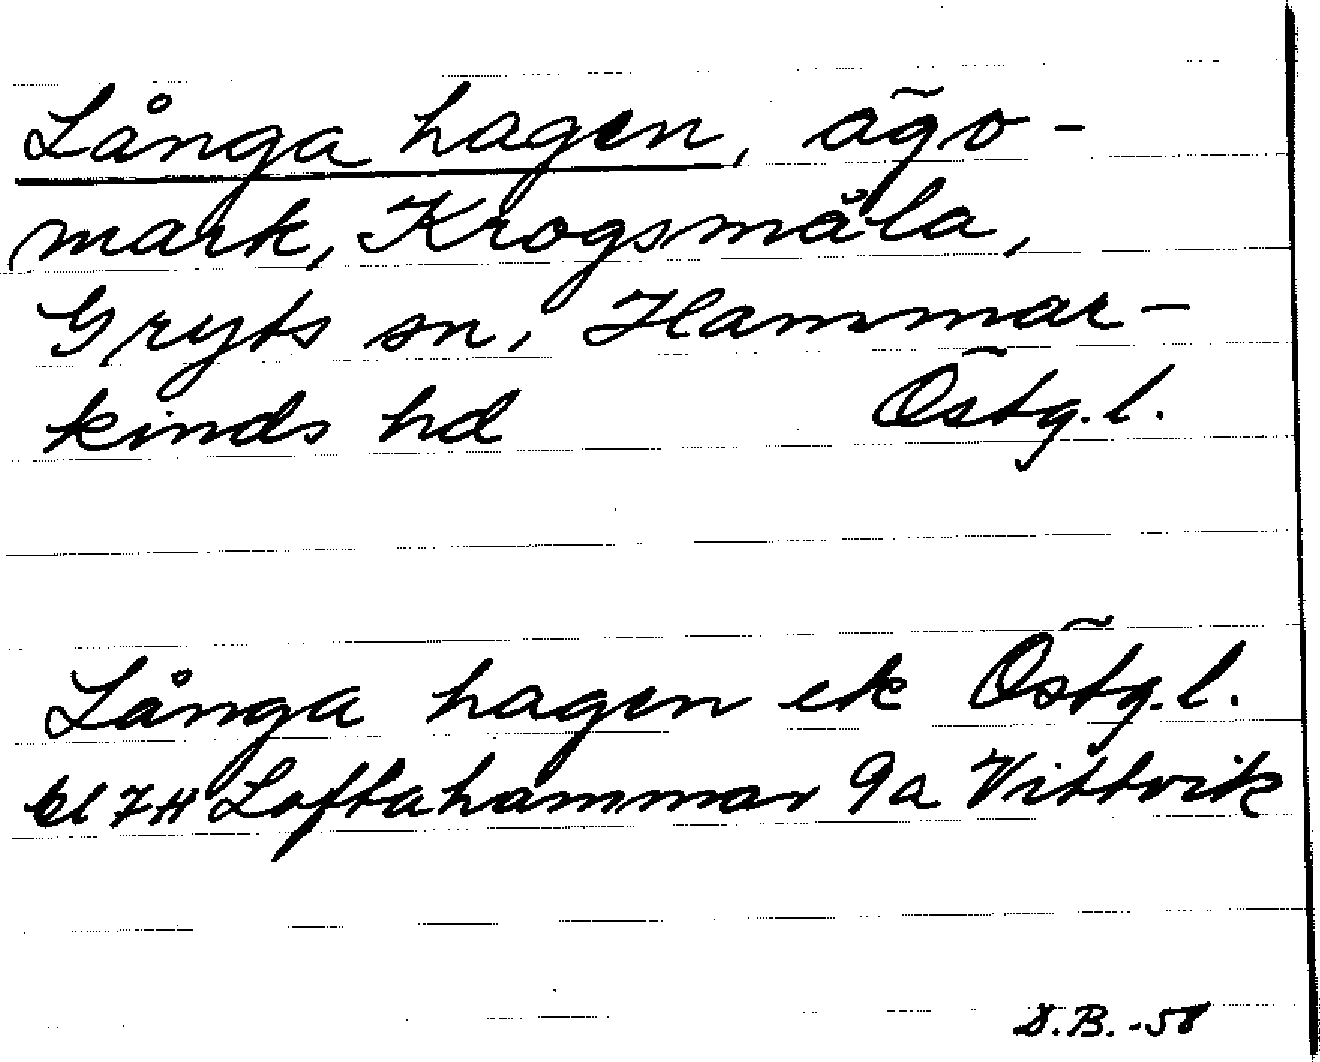 Långa hagen, ägo-
mark, Krogsmåla,
Gryts sn, Hammar-
kinds hd Östg.l.
Långa hagen ek Östg.l.
bl 7H Loftahammar 9a Vittvik
D.B. -58